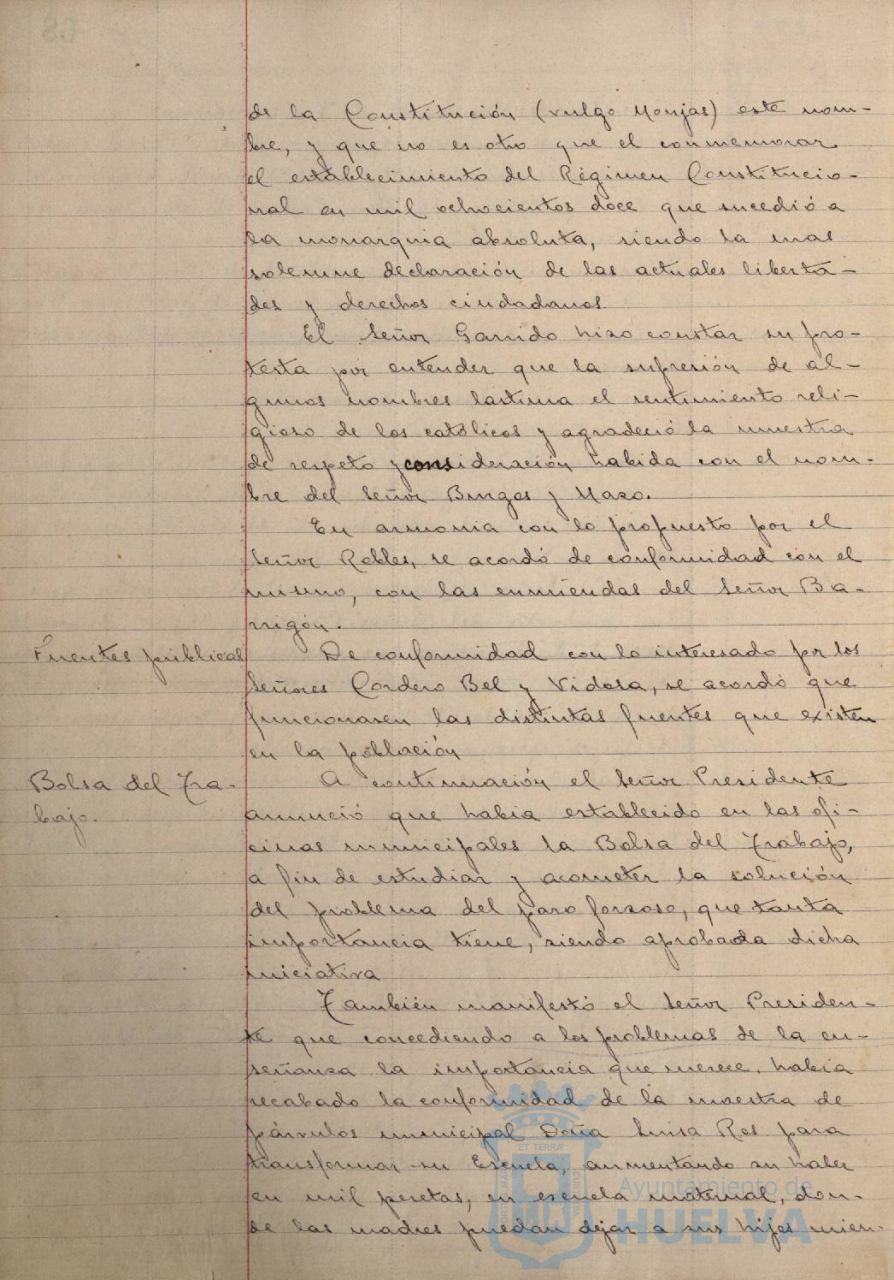 de la Constitución (vulgo Monjas) este nom-
bre, y que no es otro que el conmemorar
el establecimiento del Régimen Constitucio-
nal en mil ochocientos doce que sucedió a
la monarquia absoluta, siendo la mas
solemne declaración de las actuales liberta-
des y derechos ciudadanos.
El Señor Garrido hizo constar su pro-
testa por entender que la supresión de al-
gunos nombres lastima el sentimiento reli-
gioso de los católicos y agradeció la muestra
de respeto y consideración habida con el nom-
bre del Señor Burgos y Mazo.
En armonia con lo propuesto por el
Señor Robles, se acordó de conformidad con el
mismo, con las enmiendas del Señor Ba-
rrigón.
Fuentes públicas
De conformidad con lo interesado por los
Señores Cordero Bel y Vidosa, se acordó que
funcionasen las distintas fuentes que existen
en la población
Bolsa del Tra-
bajo.
A continuación el Señor Presidente
anunció que habia establecido en las ofi-
cinas municipales la Bolsa del Trabajo,
a fin de estudiar y acometer la solución
del problema del paro forzoso, que tanta
importancia tiene, siendo aprobada dicha
iniciativa
También manifestó el Señor Presiden-
te que concediendo a los problemas de la en-
señanza la importancia que merece, habia
recabado la conformidad de la maestra de
párvulos municipal Doña Luisa Ros para
transformar su Escuela, aumentando su haber
en mil pesetas, en escuela maternal, don-
de las madres puedan dejar a sus hijos mien-
Ayuntamiento de
HUELVA